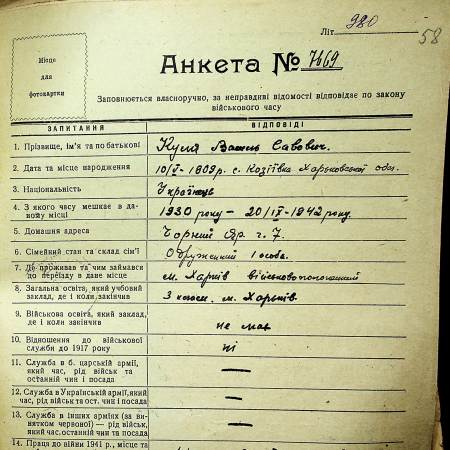 Літ. 980
58
Місце
для
фотокартки
Анкета № 7669
Заповнюється власноручно, за неправдиві відомості відповідає по закону
військового часу
ЗАПИТАННЯ ВІДПОВІДІ
1. Прізвище, ім'я та по батькові Василь Савович.
2. Дата та місце народження 10/V - 1909 р. с. Козіївка Харьковської обл.
3. Національність Українець
4. З якого часу мешкає в да-
ному місці 1930 року — 20/IX-1942 року.
5. Домашня адреса Чорний Яр. ч. 7.
6. Сімейний стан та склад сім'ї Одружений 1 особа.
7. Де проживав та чим займався
до переїзду в дане місце м. Харків
8. Загальна освіта, який учбовий
заклад, де і коли закінчив 3 класи. м. Харьків
9. Військова освіта, який заклад,
де і коли закінчив не мав
10. Відношення до військової
служби до 1917 року ні
11. Служба в б. царській армії,
який час, рід військ та
останній чин і посада —
12. Служба в Українській армії, який
час, рід військ та ост. чин і посада —
13. Служба в інших арміях (за ви-
нятком червоної) — рід військ,
який час, останній чин та посада —
14. Праця до війни 1941 р., місце та